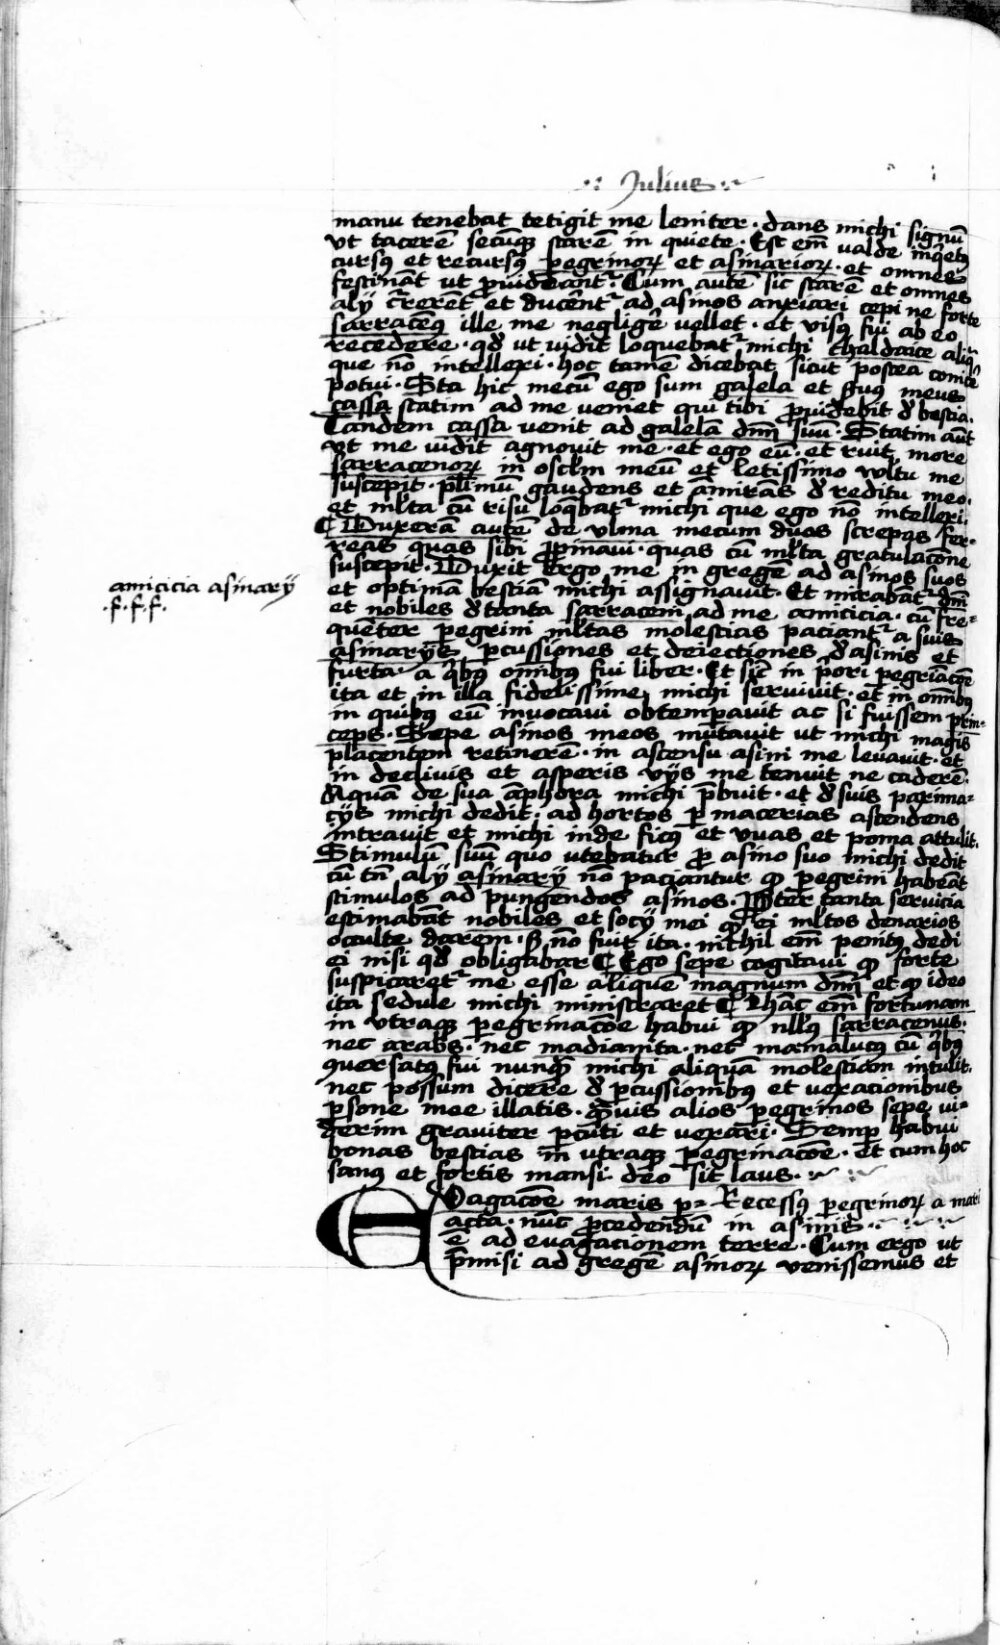 ·: Julius :~
manu tenebat tetigit me leniter · dans michi signū
vt tacerē secūqꝫ starē in quiete · Est em̄ valde inq̄etꝰ
cursꝰ et recursꝰ peregrinoꝝ et asinarioꝝ · et omnes
festināt ut ꝓuideant᷑ · Cum autē sic starē et omnes
alij c᷑rerēt et ducēnt᷑ ad asinos anxiari cepi ne forte
sarracenꝰ ille me negligē vellet · et visꝰ fui ab eo
recedere · qď ut vidit loquebat᷑ michi chaldaice aliq̄
que nō intellexi · hoc tamē dicebat sicut postea conice
potui · Sta hic mecū ego sum galela et ẜuus meus
cassa statim ad me veniet qui tibi ꝓuidebit ď bestia ·
Tandem cassa venit ad galelā dn̄m suū · Statim aūt
vt me vidit agnouit me · et ego eū · et ruit more
sarracenoꝝ in oscl̄m meū et letissimo vl̄tu me
suscepit · pl̄imū gaudens et āmirās ď reditu meo ·
et ml̄ta cū risu loq̄bat᷑ michi que ego nō intellexi ·
¶ Duxerā autē de vlma mecum duas screpas fer-
reas quas sibi ꝓpinaui · quas cū ml̄ta gratulacōne
suscepit · Duxit ergo me in gregē ad asinos suos
amicicia asinarij
· f · f · f ·
et optimā bestiā michi assignauit · Et mirabāt᷑ dn̄i
et nobiles ď tanta sarraceni ad me amicicia · cū fre-
quēter peregrini ml̄tas molestias paciant᷑ a suis
asinarijs ꝑcussiones et deiectiones ď asinis et
furta · a q̄bꝰ om̄ibꝰ fui liber · Et sic in p̄ori peregriacōe
ita et in illa fidelissime michi seruiuit · et in om̄ibꝰ
in quibꝰ eū inuocaui obtemꝑauit ac si fuissem prin-
ceps · Sepe asinos meos mutauit ut michi magis
placentem retinerē · in ascensu asini me leuauit · et
in decliuis et asperis vijs me tenuit ne caderē ·
Aquā de sua āphora michi p̄buit · et ď suis paxima-
cijs michi dedit · ad hortos ꝑ macerias ascendens
intrauit et michi inde ficꝰ et vuas et poma attulit ·
Stimulū suū quo utebatur ꝓ asino suo michi dedit
cū tn̄ alij asinarij nō paciantur qꝫ peregrini habeāt
stimulos ad pungendos asinos · Ꝓpter tanta seruicia
estimabāt nobiles et socij mei qꝫ ei ml̄tos denarios
occulte darem · ẜ nō fuit ita · nichil em̄ penitꝰ dedi
ei nisi qď obligabar ¶ Ego sepe cogitaui qꝫ forte
suspicaret᷑ me esse aliquem magnum dn̄m et qꝫ ideo
ita sedule michi ministraret ¶ Hāc em̄ fortunam
in vtraqꝫ peregrinacōe habui qꝫ nll̄ꝰ sarracenus ·
nec arabs · nec madianita · nec mamalucꝰ cū q̄bꝰ
ꝯuersatꝰ fui nunqꝫ michi aliquā molestiam intulit ·
nec possum dicere ď ꝑcussionibꝰ et vexacionibus
ꝑsone mee illatis · qꝫuis alios peregrinos sepe vi-
derim grauiter ꝑcuti et vexari · Semꝑ habui
bonas bestias in vtraqꝫ peregrinacōe · et cum hoc
sanꝰ et fortis mansi · deo sit laus ·
Evagacōe maris ꝑ- Recessꝰ peregrinoꝝ a mari
acta · nūc ꝓcedendū in asinis ·
ē ad euagacionem terre · Cum ergo ut
p̄misi ad gregē asinoꝝ venissemus et